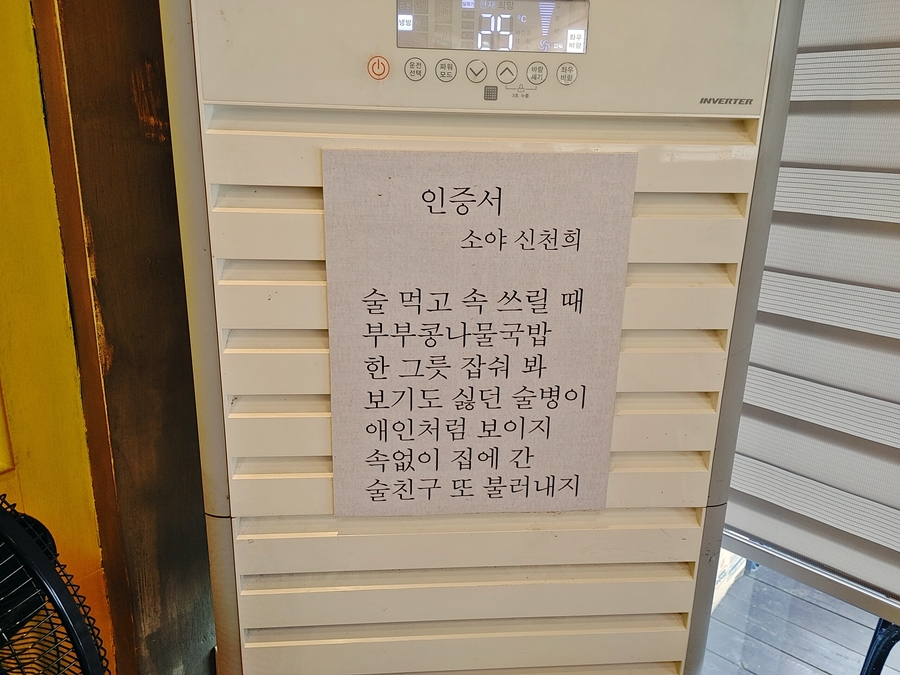 냉방
희망
25
°C
좌우
바람
운전
선택
파워
모드
바람
세기
좌우
바람
3초 누름
INVERTER
인증서
소야 신천희
술 먹고 속 쓰릴 때
부부콩나물국밥
한 그릇 잡숴 봐
보기도 싫던 술병이
애인처럼 보이지
속없이 집에 간
술친구 또 불러내지